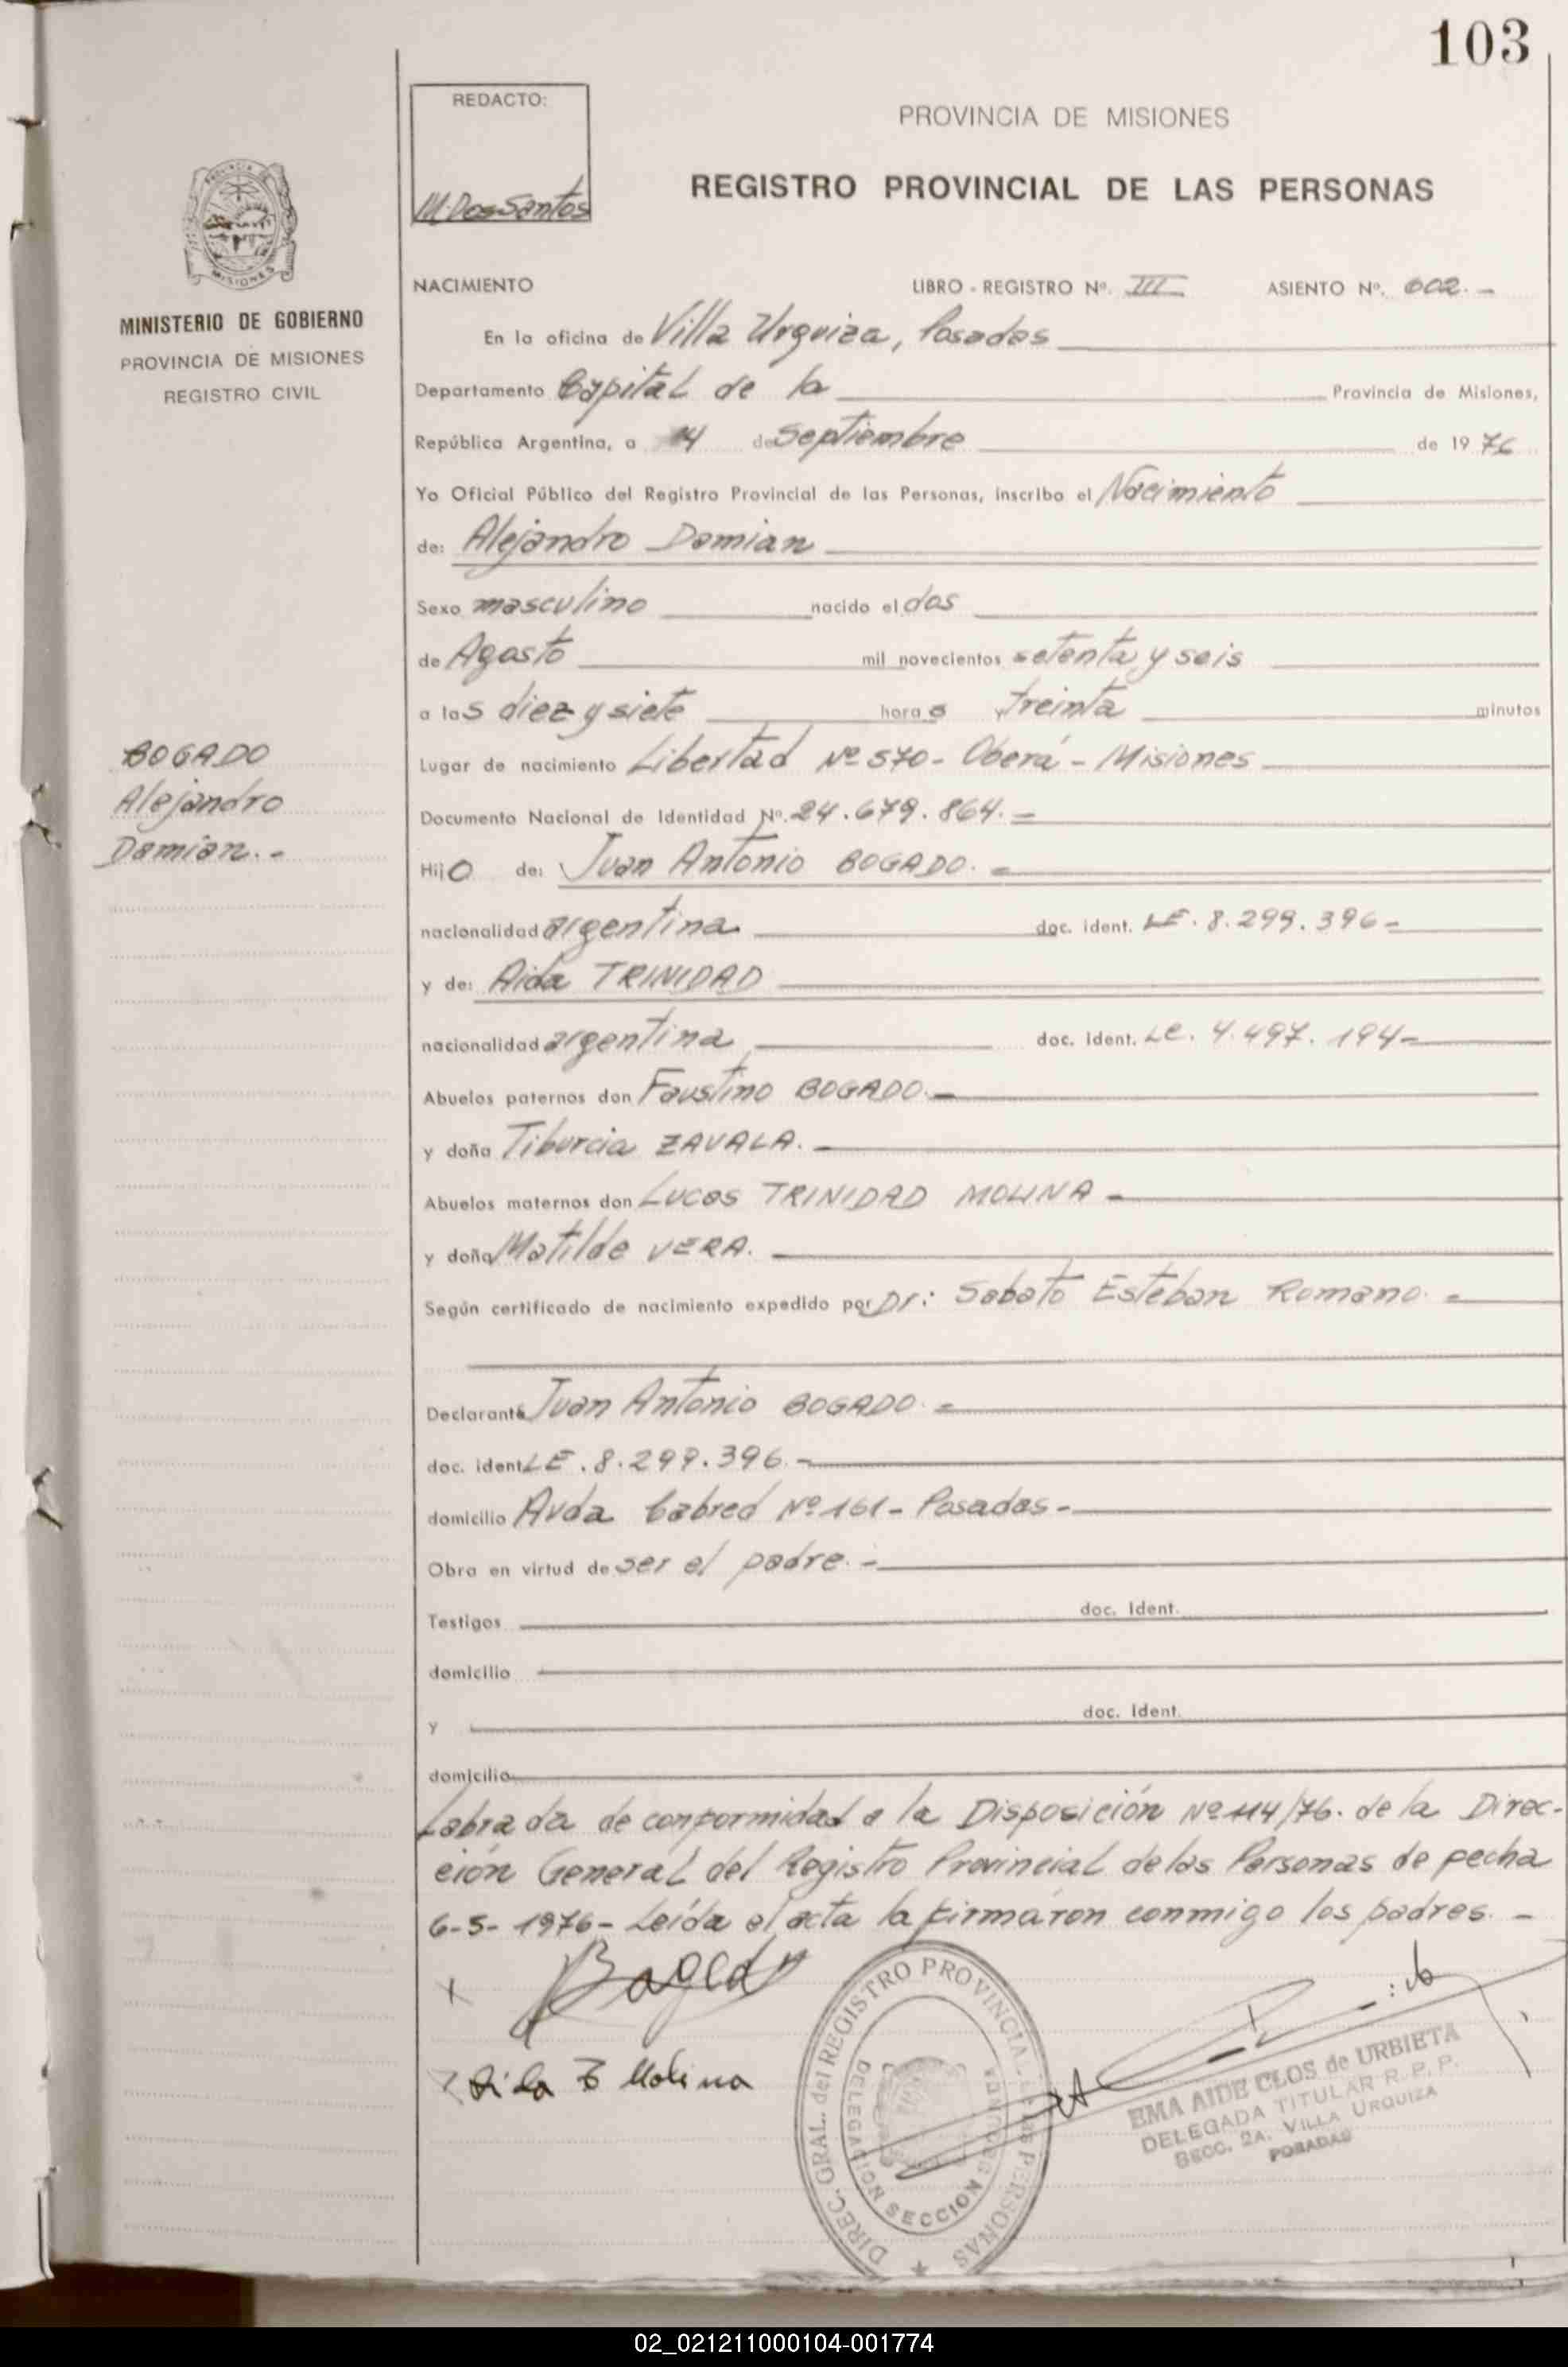 103
REDACTO:
M. Dos Santos
PROVINCIA DE MISIONES
REGISTRO PROVINCIAL DE LAS PERSONAS
MISIONES
MINISTERIO DE GOBIERNO
PROVINCIA DE MISIONES
REGISTRO CIVIL
NACIMIENTO LIBRO - REGISTRO Nº. III ASIENTO Nº. 602.-
En la oficina de Villa Urquiza, Posadas
Departamento Capital de la Provincia de Misiones,
República Argentina, a 14 de Septiembre de 1976
Yo Oficial Público del Registro Provincial de las Personas, inscribo el Nacimiento
de: Alejandro Damian
Sexo masculino nacido el dos
de Agosto mil novecientos setenta y seis
a las diez y siete horas y treinta minutos
Lugar de nacimiento Libertad Nº 570- Oberá - Misiones
Documento Nacional de Identidad Nº. 24.679.864.-
BOGADO
Alejandro
Damian.-
Hijo de: Juan Antonio BOGADO.-
nacionalidad argentina doc. ident. LE. 8.299.396-
y de: Aida TRINIDAD
nacionalidad argentina doc. ident. LC. 4.497.194-
Abuelos paternos don Faustino BOGADO.-
y doña Tiburcia ZAVALA.-
Abuelos maternos don Lucas TRINIDAD MOLINA -
y doña Matilde VERA.
Según certificado de nacimiento expedido por Dr: Sabato Esteban Romano.-
Declarante Juan Antonio BOGADO.-
doc. ident. LE. 8.299.396.-
domicilio Avda Cabred Nº 161- Posadas-
Obra en virtud de ser el padre.-
Testigos doc. Ident.
domicilio
y doc. Ident.
domicilio
Labrada de conformidad a la Disposición Nº 114/76. de la Direc-
ción General del Registro Provincial de las Personas de fecha
6-5-1976- Leída el acta la firmaron conmigo los padres.-
x Bogado
Aida T Molina
DIREC. GRAL. del REGISTRO PROVINCIAL de las PERSONAS
DELEGACION SECCION SEGUNDA
EMA AIDE CLOS de URBIETA
DELEGADA TITULAR R. P. P.
SECC. 2A. VILLA URQUIZA
POSADAS
02_021211000104-001774